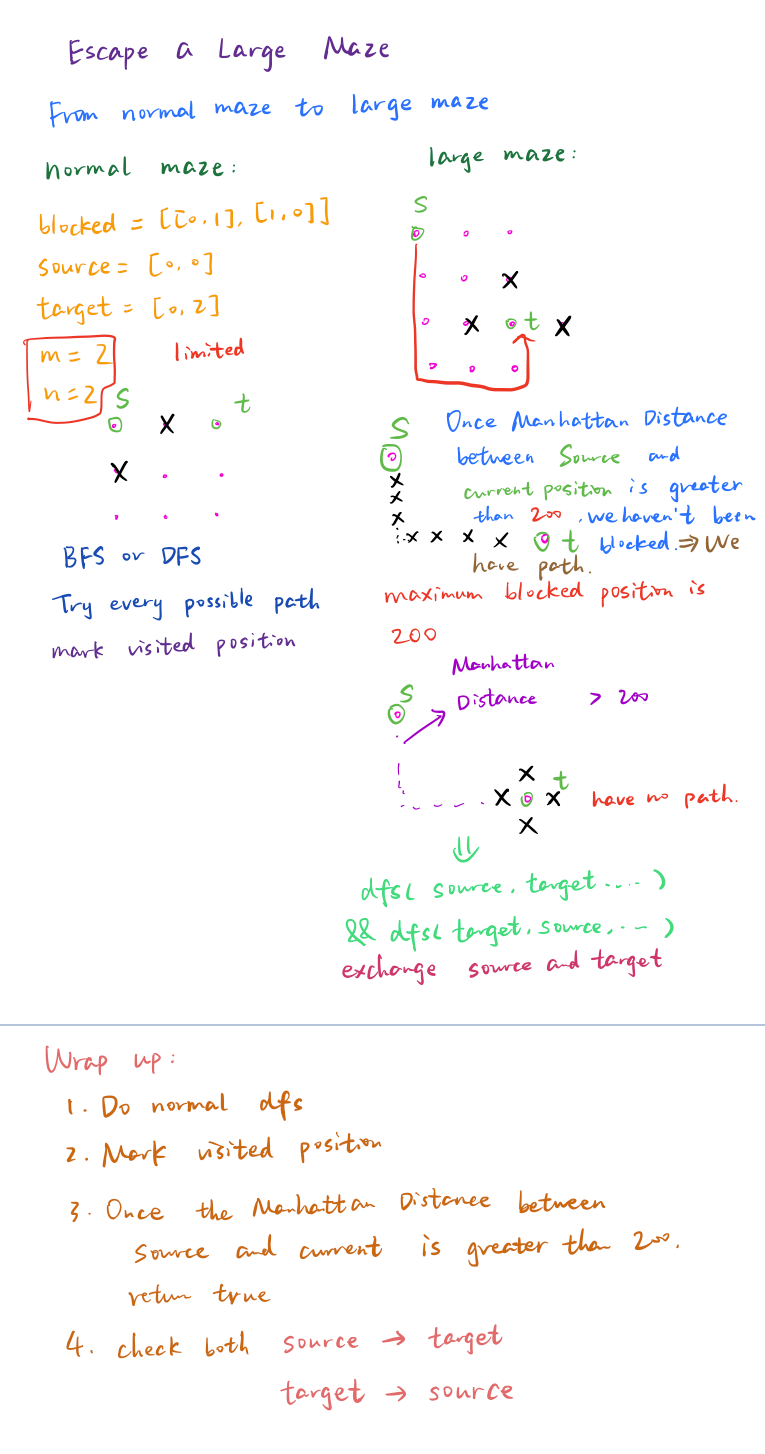 Escape a Large Maze
From normal maze to large maze
normal maze:
blocked = [[0,1], [1,0]]
source = [0,0]
target = [0,2]
m = 2
n = 2
limited
S
t
X
X
BFS or DFS
Try every possible path
mark visited position
large maze:
S
X
X
t
X
S
Once Manhattan Distance
between Source and
current position is greater
than 200, we haven't been
blocked. ⇒ We
have path.
x
x
x
x x x x
t
maximum blocked position is
200
S
Manhattan
Distance > 200
X
t
X X
X
have no path.
⇓
dfs( source, target .... )
&& dfs( target, source, ... )
exchange source and target
Wrap up:
1. Do normal dfs
2. Mark visited position
3. Once the Manhattan Distance between
source and current is greater than 200.
return true
4. check both source → target
target → source